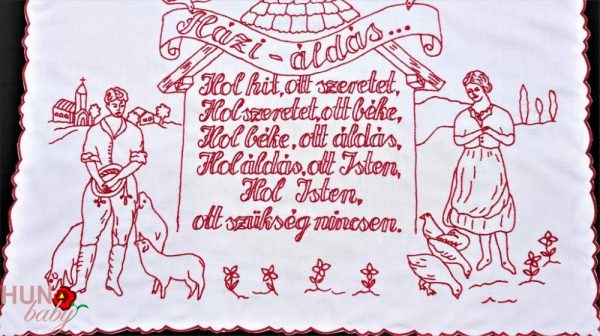 Házi-áldás...
Hol hit, ott szeretet,
Hol szeretet, ott béke,
Hol béke, ott áldás,
Hol áldás, ott Isten,
Hol Isten,
ott szükség nincsen.
HUN
baby